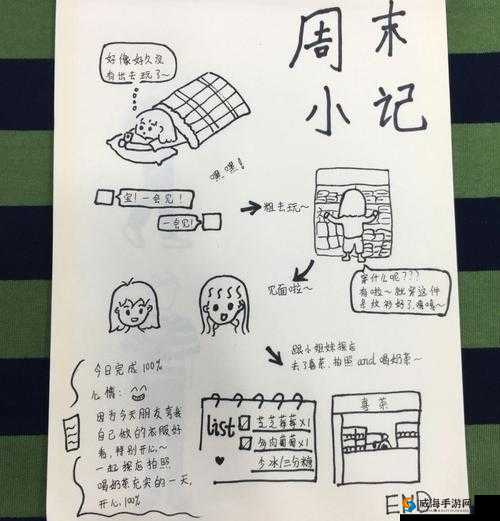 周末
小记
好像好久没
有出去玩了~
嘿,嘿!
宝!一会见!
一会见!
粗去玩~
穿什么呢???
有啦~就穿这件
见面啦~
跟小姐妹探店
去了喜茶,拍照and喝奶茶~
今日完成100%
心情:
因为今天朋友夸我
自己做的衣服好
看,特别开心~
一起探店拍照
喝奶茶充实的一天,
开心,100%
list
芝芝莓莓×1
多肉葡萄×1
少冰/三分糖
喜茶
END
威海手游网